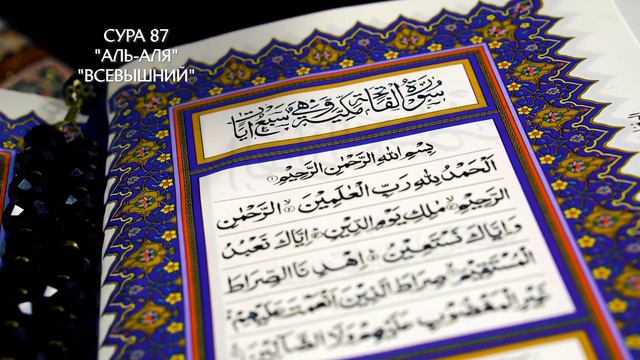 СУРА 87
"АЛЬ-АЛЯ"
"ВСЕВЫШНИЙ"
سورة الفاتحة مكية وهي سبع آيات
بِسْمِ اللهِ الرَّحْمٰنِ الرَّحِيْمِ
اَلْحَمْدُ لِلّٰهِ رَبِّ الْعٰلَمِيْنَ الرَّحْمٰنِ
الرَّحِيْمِ مٰلِكِ يَوْمِ الدِّيْنِ اِيَّاكَ نَعْبُدُ
وَاِيَّاكَ نَسْتَعِيْنُ اِهْدِنَا الصِّرَاطَ
الْمُسْتَقِيْمَ صِرَاطَ الَّذِيْنَ اَنْعَمْتَ عَلَيْهِمْ
غَيْرِ الْمَغْضُوْبِ عَلَيْهِمْ وَلَا الضَّآلِّيْنَ